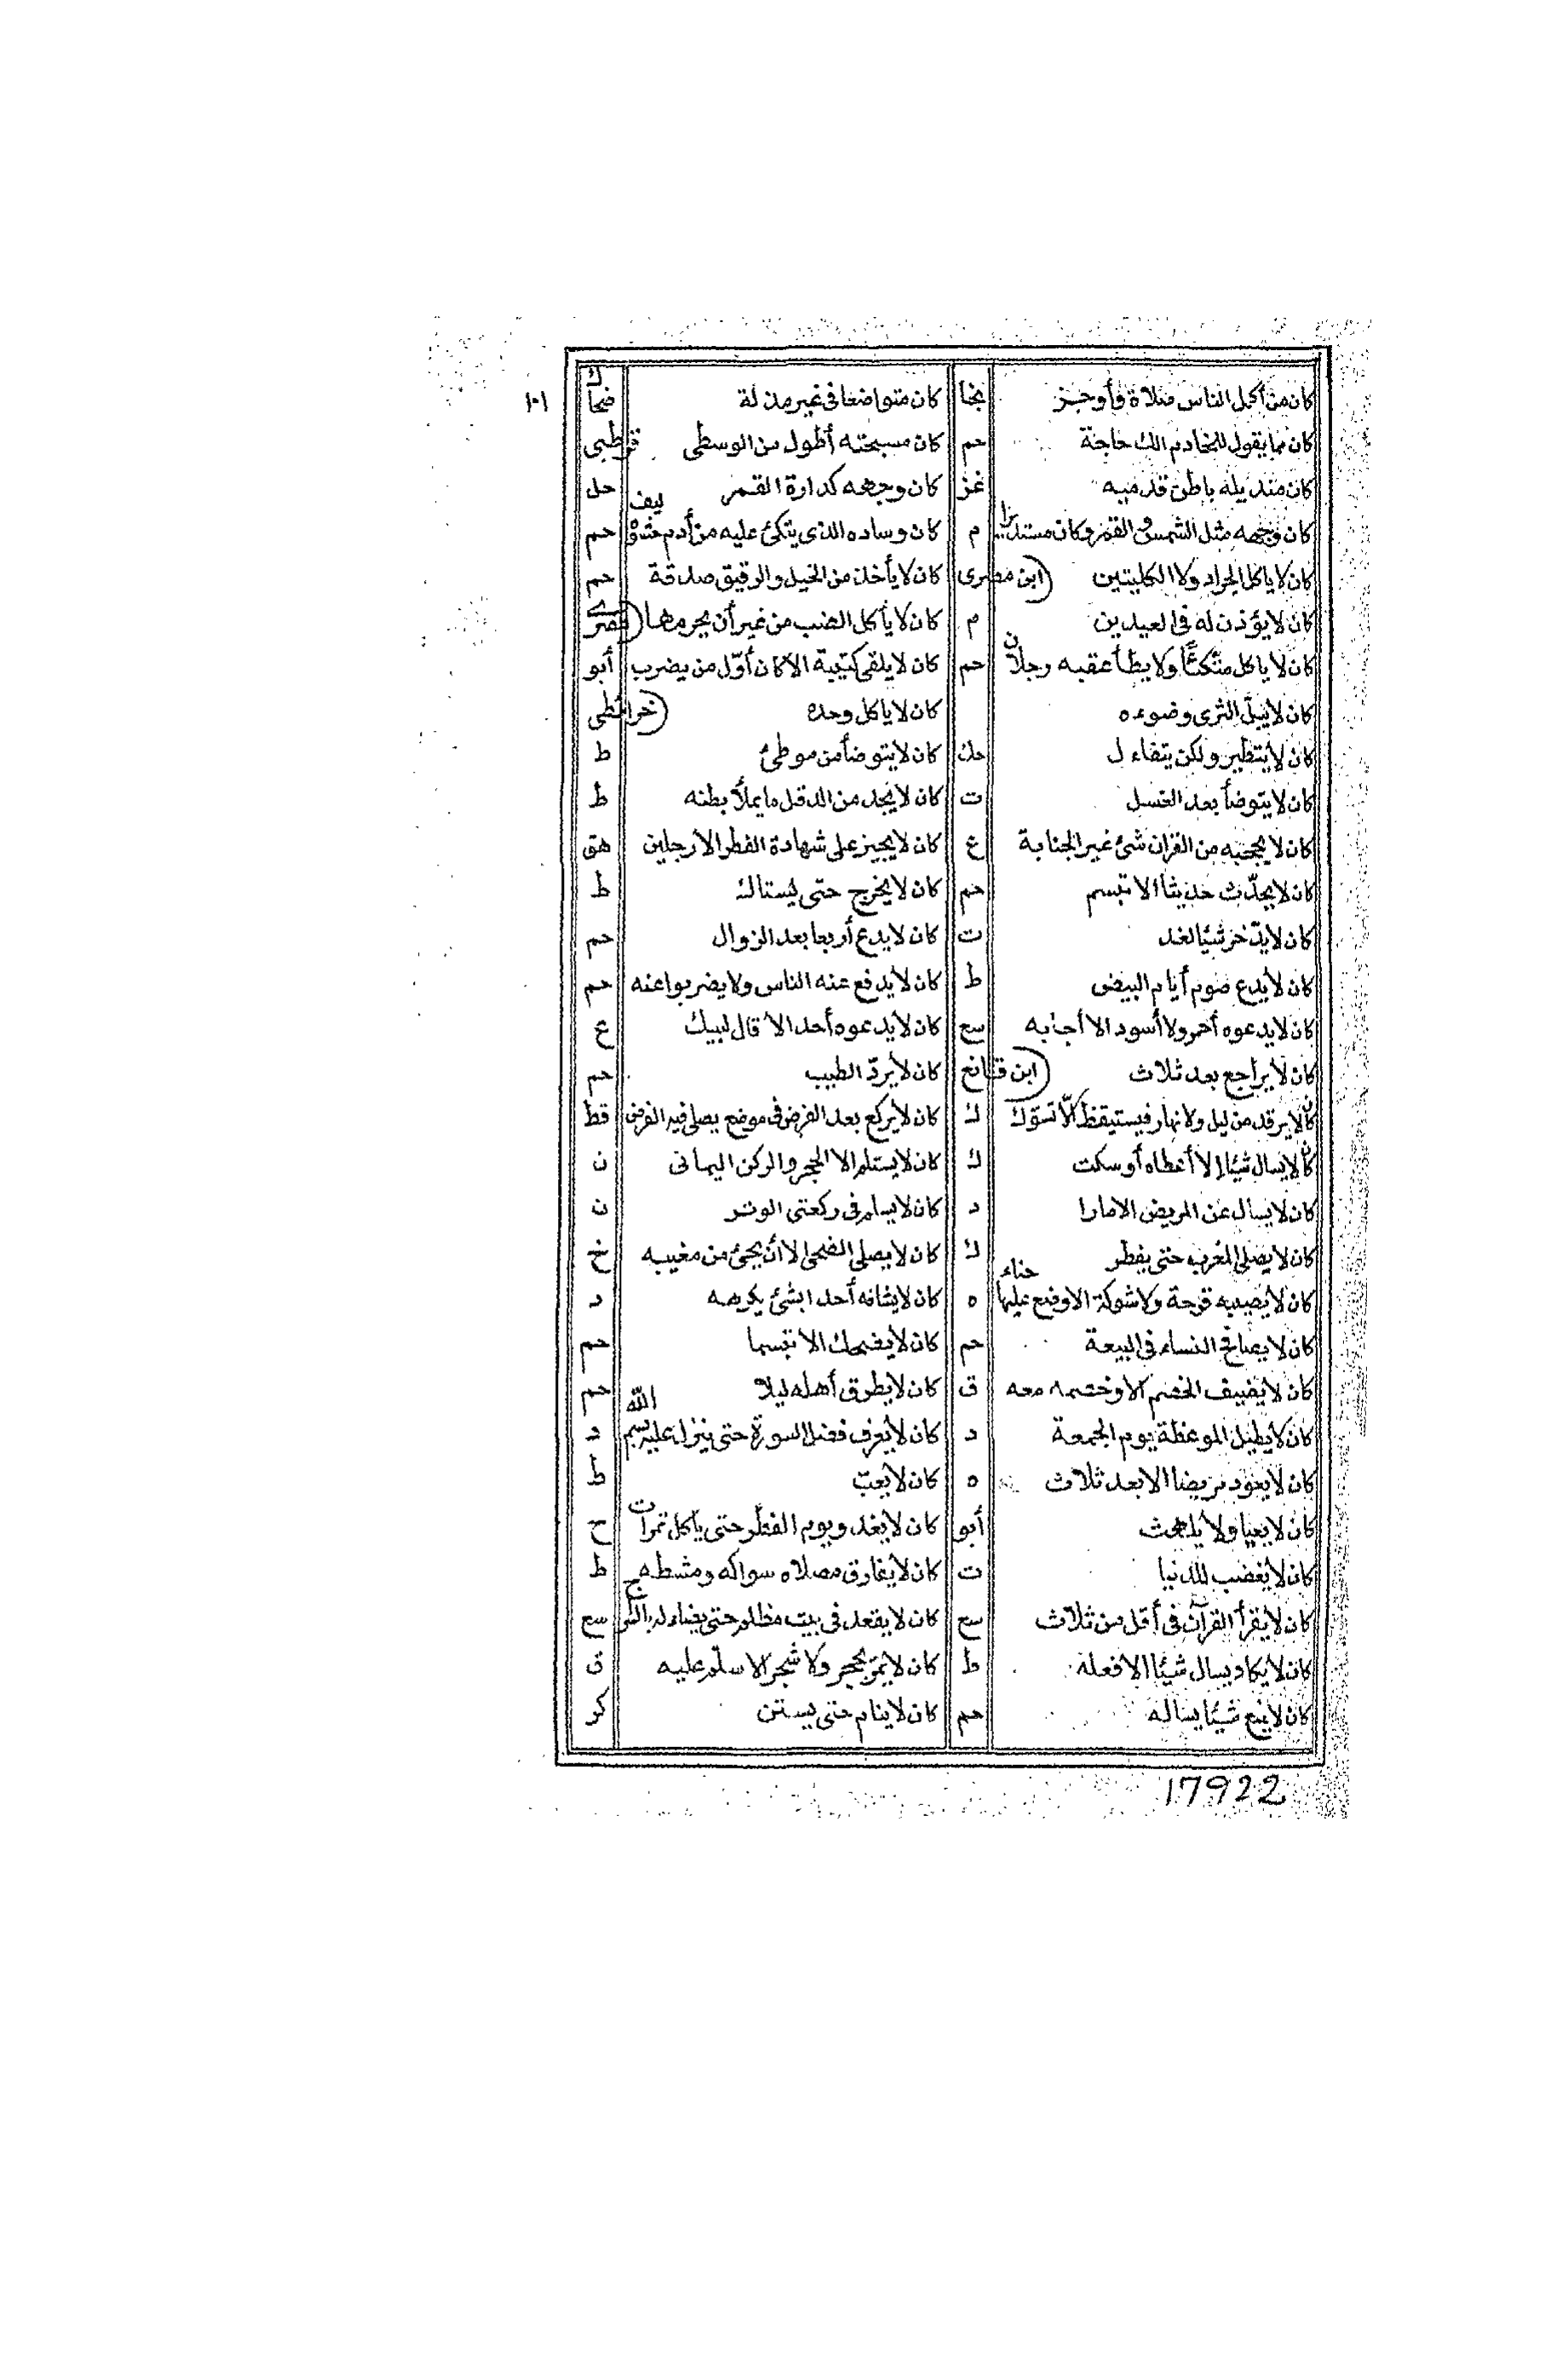 ١٠١
كان من أكمل الناس صلاة وأوجز نجا كان متواضعا في غير مذلة ضحاك
كان مما يقول للخادم الك حاجة حم كان مسبحته أطول من الوسطى قرطبي
كان منديله باطن قدميه غز كان وجهه كدارة القمر حل
كان وجهه مثل الشمس والقمر وكان مستديرا م كان وساده الذي يتكئ عليه من أدم حشوه ليف حم
كان لا ياكل الجراد ولا الكليتين (ابن مصرى كان لا يأخذ من الخيل والرقيق صدقة حم
كان لا يؤذن له في العيدين م كان لا يأكل الضب من غير أن يحرمها (مصرى
كان لا ياكل متكئا ولا يطأ عقبه رجلان حم كان لا يلقى كتيبة الا كان أول من يضرب أبو
كان لا يبل الثرى وضوءه كان لا ياكل وحده (خرائطى
كان لا يتطير ولكن يتفاءل حك كان لا يتوضأ من موطئ ط
كان لا يتوضأ بعد الغسل ت كان لا يجد من الدقل ما يملأ بطنه ط
كان لا يحجبه من القران شئ غير الجنابة ع كان لا يجيز على شهادة الفطر الا رجلين هق
كان لا يحدّث حديثا الا تبسم حم كان لا يخرج حتى يستاك ط
كان لا يدّخر شيئا لغد ت كان لا يدع أربعا بعد الزوال حم
كان لا يدع صوم أيام البيض ط كان لا يدفع عنه الناس ولا يضربوا عنه حم
كان لا يدعوه أحمر ولا أسود الا أجابه سع كان لا يدعوه أحد الا قال لبيك ع
كان لا يراجع بعد ثلاث (ابن قانع كان لا يردّ الطيب حم
كان لا يرقد من ليل ولا نهار فيستيقظ الّا تسوّك ك كان لا يركع بعد الفرض في موضع يصلى فيه الفرض قط
كان لا يسال شيئا إلا أعطاه أو سكت ك كان لا يستلم الا الحجر والركن اليمانى ن
كان لا يسال عن المريض الا مارا د كان لا يسلم في ركعتى الوتر ن
كان لا يصلى المغرب حتى يفطر ك كان لا يصلى الضحى الا أن يجئ من مغيبه خ
كان لا يصيبه قرحة ولا شوكة الا وضع عليها حناء ه كان لا يشافه أحدا بشئ يكرهه د
كان لا يصافح النساء في البيعة حم كان لا يضحك الا تبسما حم
كان لا يضيف الخصم الا وخصمه معه ق كان لا يطرق أهله ليلا حم
كان لا يطيل الموعظة يوم الجمعة د كان لا يعرف فصل السورة حتى ينزل عليه بسم الله د
كان لا يعود مريضا الا بعد ثلاث ه كان لا يعبّ ط
كان لا يعيا ولا يلهث أبو كان لا يغدو يوم الفطر حتى يأكل تمرات ح
كان لا يغضب للدنيا ت كان لا يفارق مصلاه سواكه ومشطه ط
كان لا يقرأ القرآن في أقل من ثلاث سع كان لا يقعد في بيت مظلم حتى يضاء له بالسراج سع
كان لا يكاد يسال شيئا الا فعله ط كان لا يمرّ بحجر ولا شجر الا سلّم عليه ق
كان لا يمنع شيئا يساله حم كان لا ينام حتى يستن كر
17922